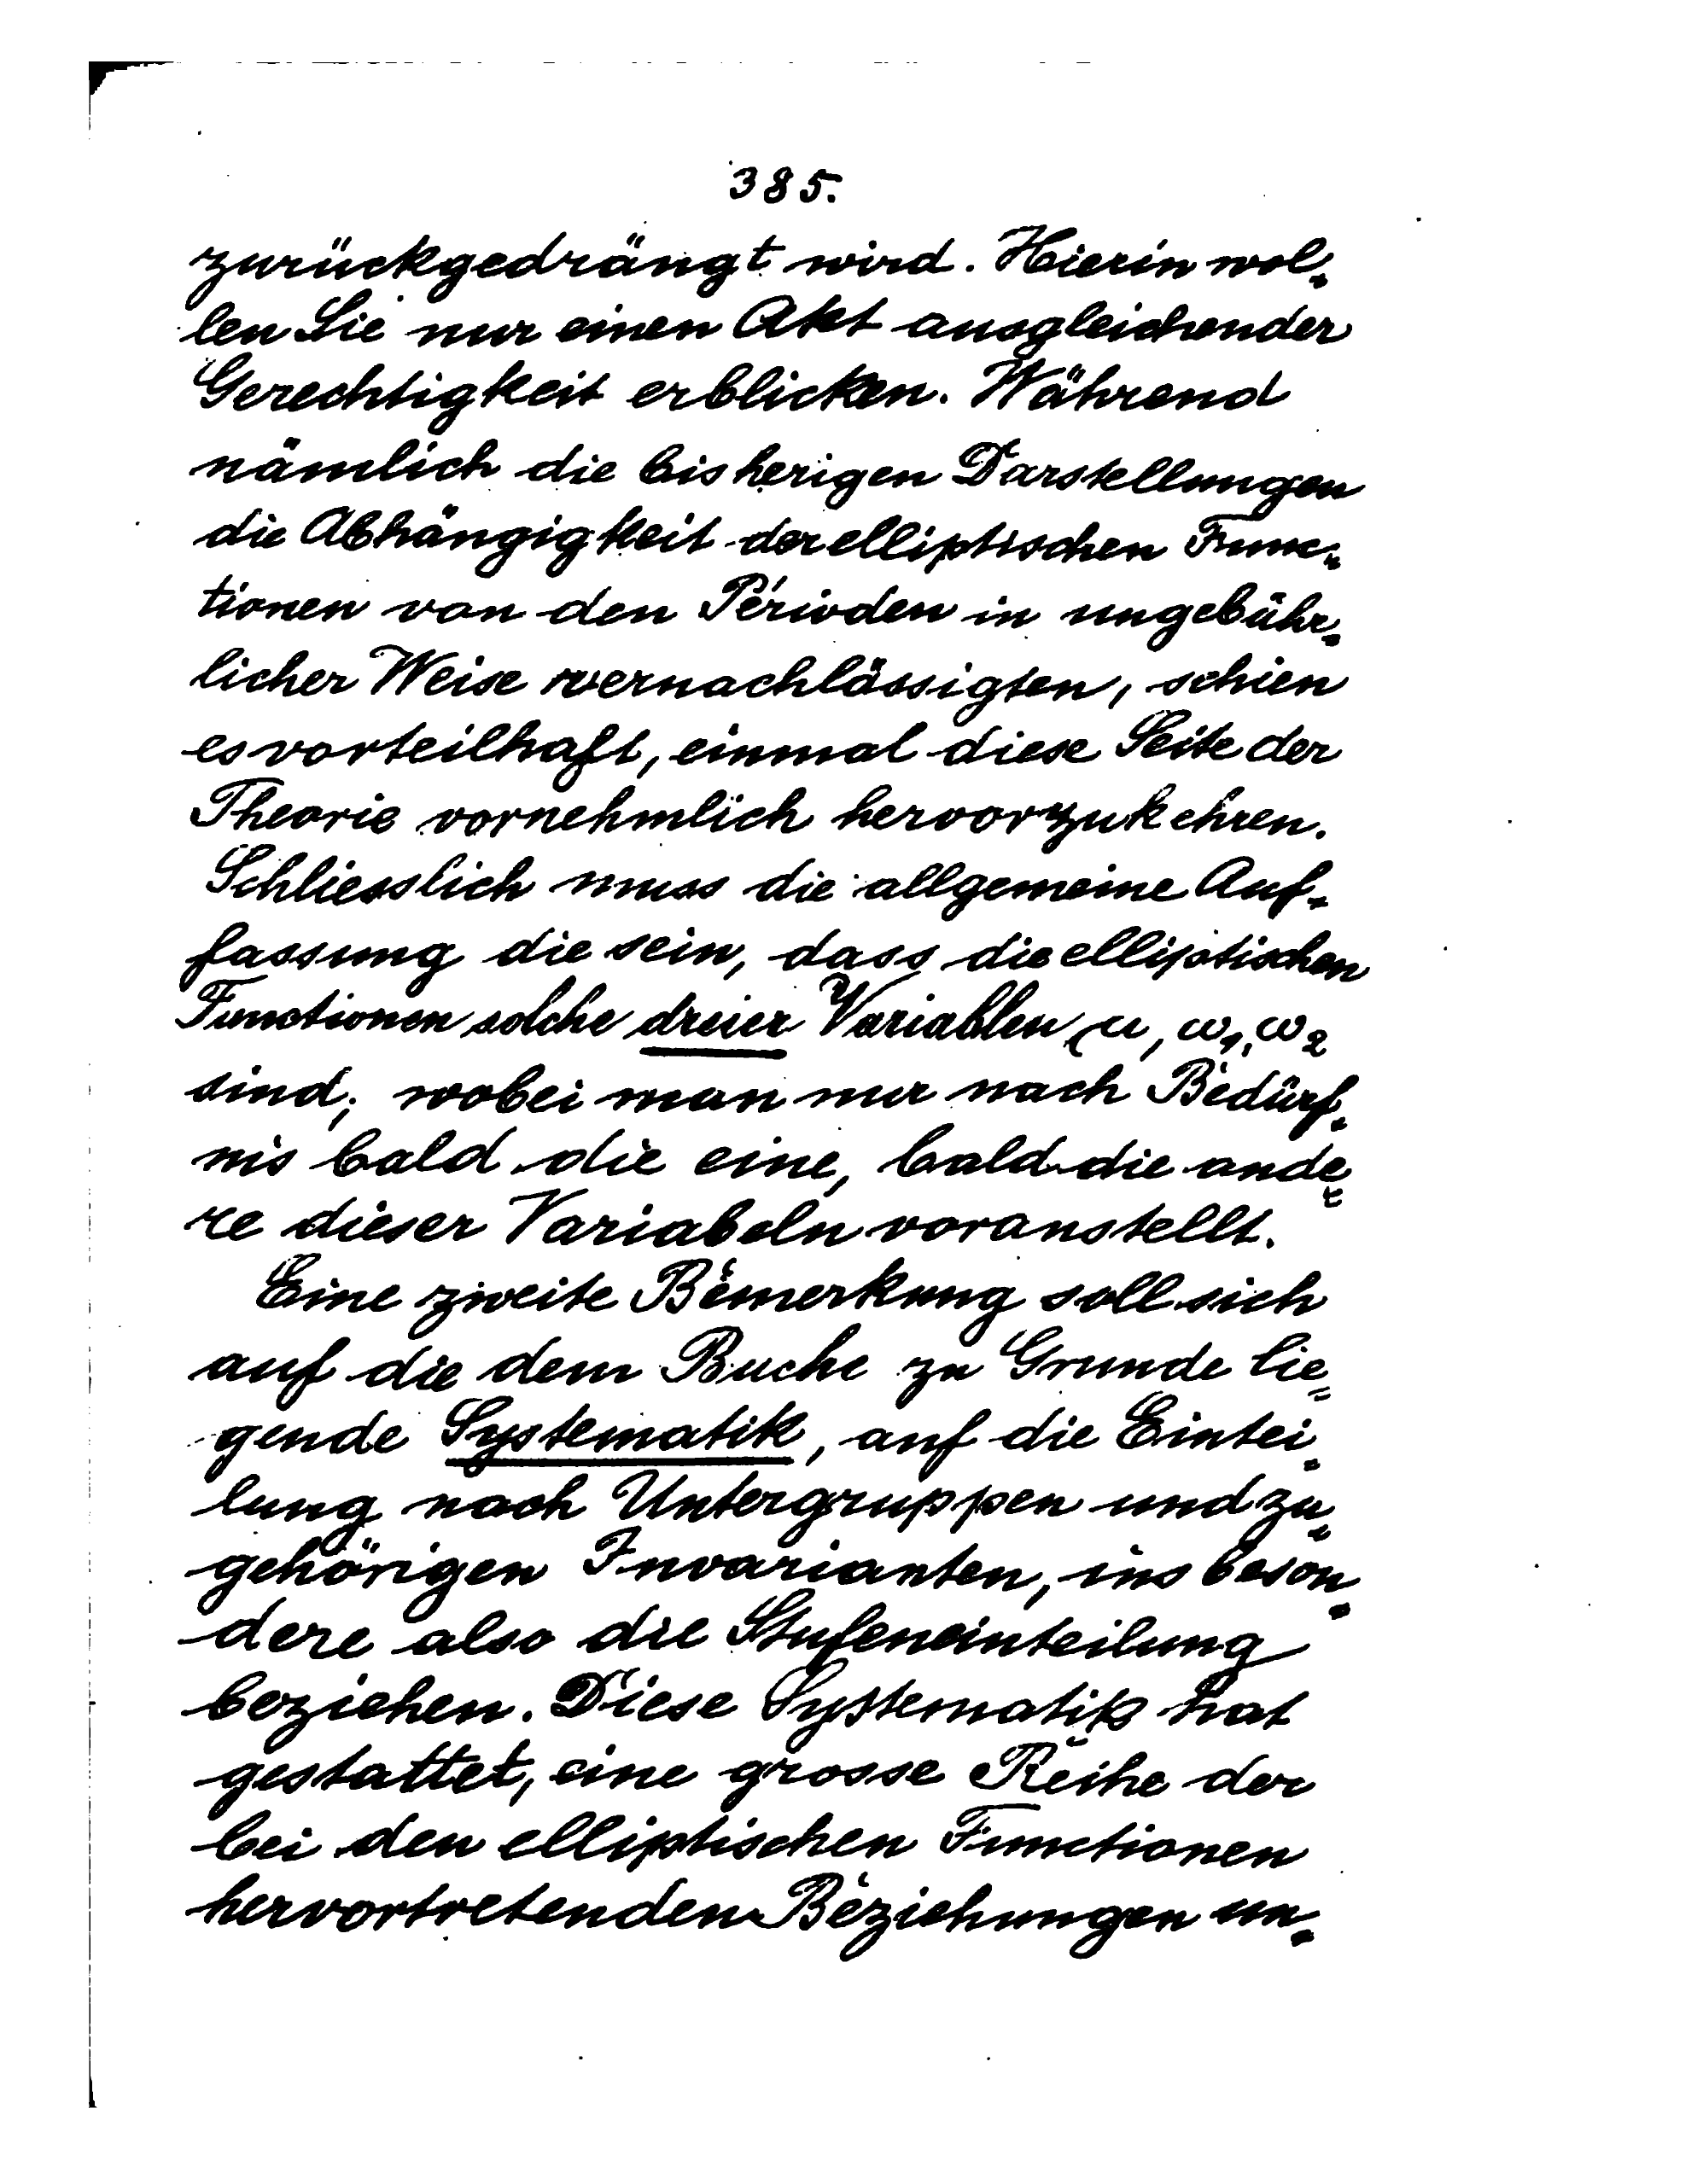 385.
zurückgedrängt wird. Hierin wol-
len Sie nur einen Akt ausgleichender
Gerechtigkeit erblicken. Während
nämlich die bisherigen Darstellungen
die Abhängigkeit der elliptischen Func-
tionen von den Perioden in ungebühr-
licher Weise vernachlässigten, schien
es vorteilhaft, einmal diese Seite der
Theorie vornehmlich hervorzukehren.
Schliesslich muss die allgemeine Auf-
fassung die sein, dass die elliptischen
Functionen solche dreier Variablen u, ω₁, ω₂
sind; wobei man nur nach Bedürf-
nis bald die eine, bald die ande-
re dieser Variabeln voranstellt.
Eine zweite Bemerkung soll sich
auf die dem Buche zu Grunde lie-
gende Systematik, auf die Eintei-
lung nach Untergruppen und zu-
gehörigen Invarianten, ins beson-
dere also die Stufeneinteilung
beziehen. Diese Systematik hat
gestattet, eine grosse Reihe der
bei den elliptischen Functionen
hervortretenden Beziehungen un-